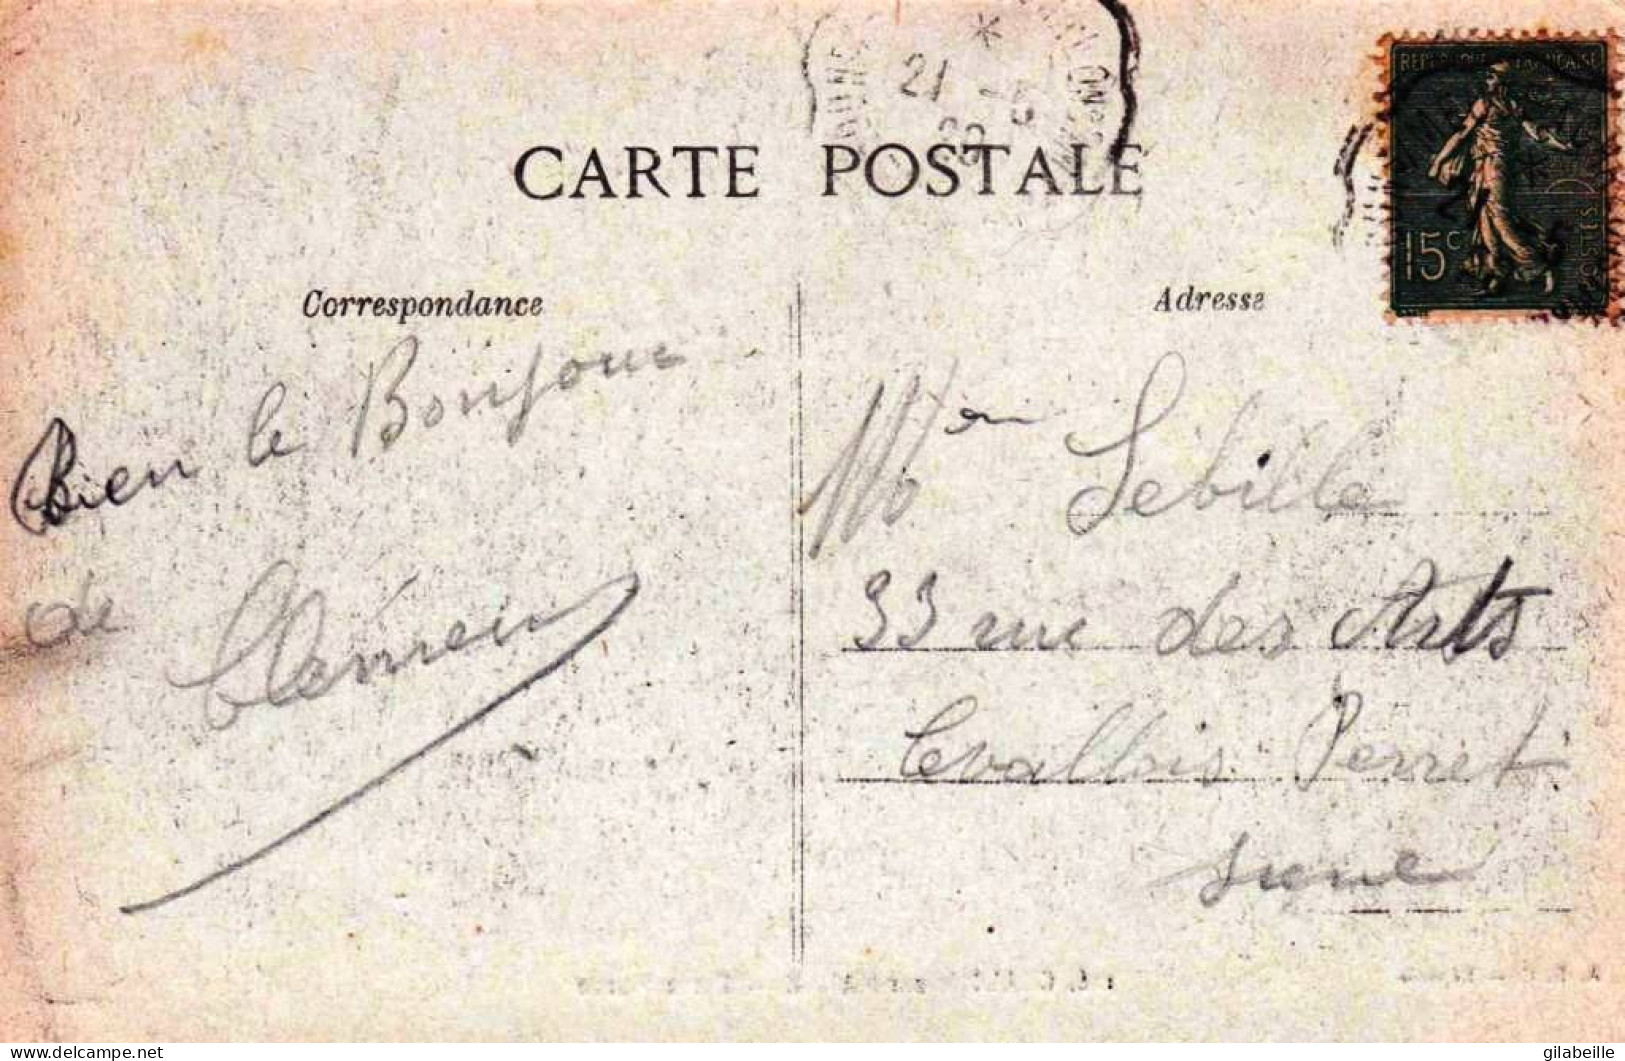 CARTE POSTALE
Correspondance
Adresse
REPUBLIQUE FRANÇAISE
15c
POSTES
21
Bien le Bonjour
de
Mme Sebille
33 rue des Arts
Levallois Perret
Seine
delcampe.net
gilabeille